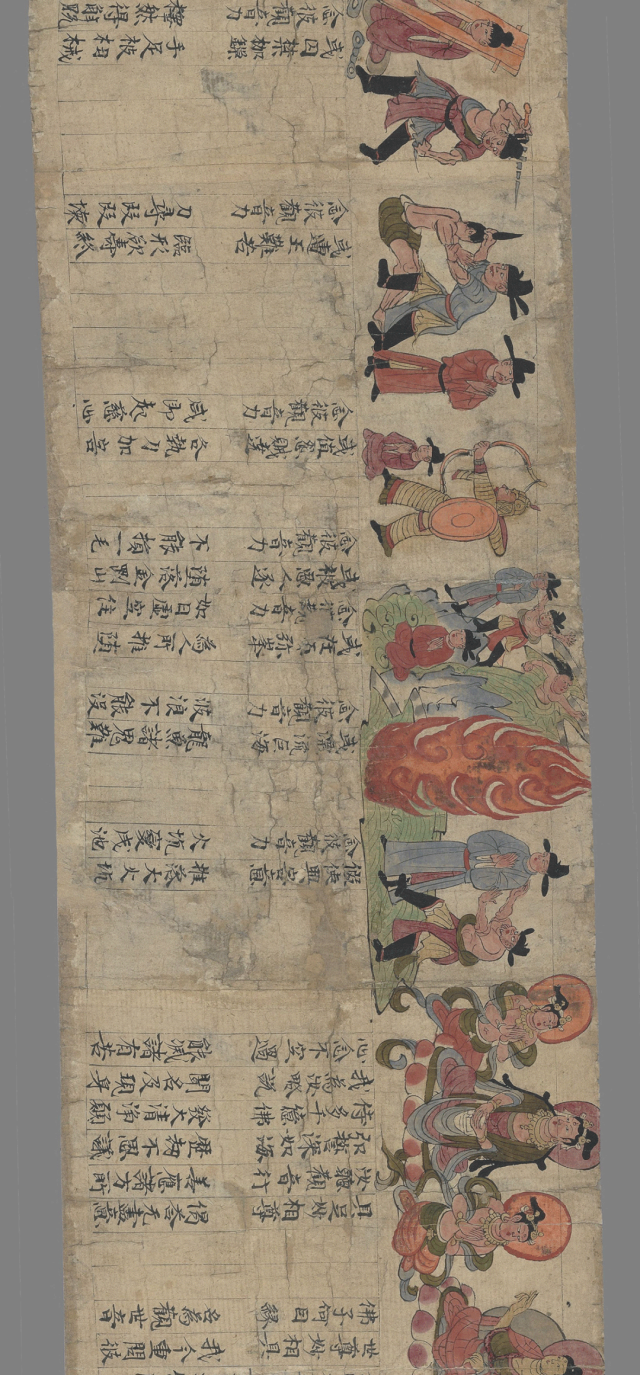 世尊妙相具 我今重問彼
佛子何因緣 名為觀世音
具足妙相尊 偈荅无盡意
汝聽觀音行 善應諸方所
弘誓深如海 歷劫不思議
侍多千億佛 發大清淨願
我為汝略說 聞名及現身
心念不空過 能滅諸有苦
假使興害意 推落大火坑
念彼觀音力 火坑變成池
或漂流巨海 龍魚諸鬼難
念彼觀音力 波浪不能沒
或在須弥峯 為人所推墮
念彼觀音力 如日虛空住
或被惡人逐 墮落金剛山
念彼觀音力 不能損一毛
或值怨賊遶 各執刀加害
念彼觀音力 咸即起慈心
或遭王難苦 臨形欲壽終
念彼觀音力 刀尋段段壞
或囚禁枷鏁 手足被杻械
念彼觀音力 釋然得解脫